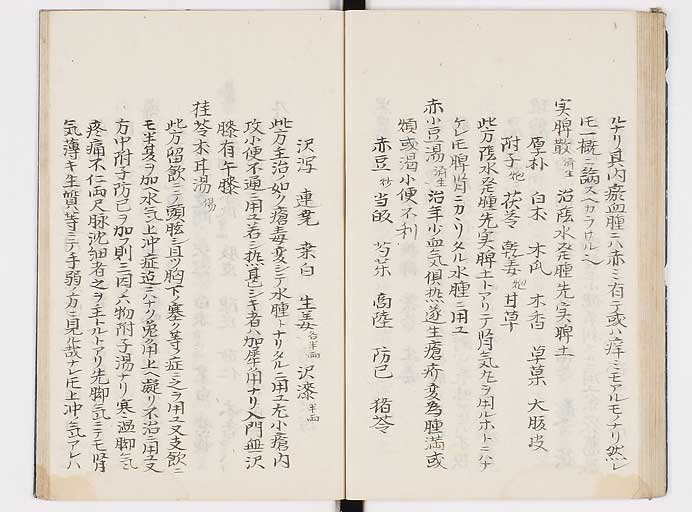 ルナリ且内瘀血腫ニハ赤ミ有テ或ハ痒ミモアルモノナリ然レ
𪜈一概ニ論スヘカラサルヘシ
実脾散 済生 治陰水発腫先実脾土
厚朴 白朮 木瓜 木香 草菓 大腹皮
附子 炮 茯苓 乾姜 炮 甘草
此方陰水発腫先実脾土トアリテ腎気丸ヲ用ルホトニハナ
ケレ𪜈脾腎ニカヽリタル水腫ニ用ユ
赤小豆湯 済生 治年少血気倶熱遂生瘡疥変為腫満或
煩或渇小便不利
赤豆 炒 当帰 芍薬 商陸 防已 猪苓
沢瀉 連翹 桑白 生姜 各半両 沢漆 半両
此方主治ノ如ク瘡毒変シテ水腫トナリタルニ用ユ尤小瘡内
攻小便不通ニ用ユ若シ熱甚シキ者ハ加犀角ナリ入門無沢
漆有牛膝
桂苓木耳湯
此方留飲ニテ頭眩シ且ツ胸下ノ塞ク等ノ症ニ之ヲ用ユ又支飲ニ
モ半夏ヲ加ヘ水気上冲
方中附子防已ヲ加フ則三因六物附子湯ナリ寒湿脚気
疼痛不仁両尺脉沈細者之ヲ主トルトアリ先脚気ニテモ腎
気薄キ生質等ニテ手弱ノ方ニ見ユ哉ナレ𪜈上冲ノ気アレハ